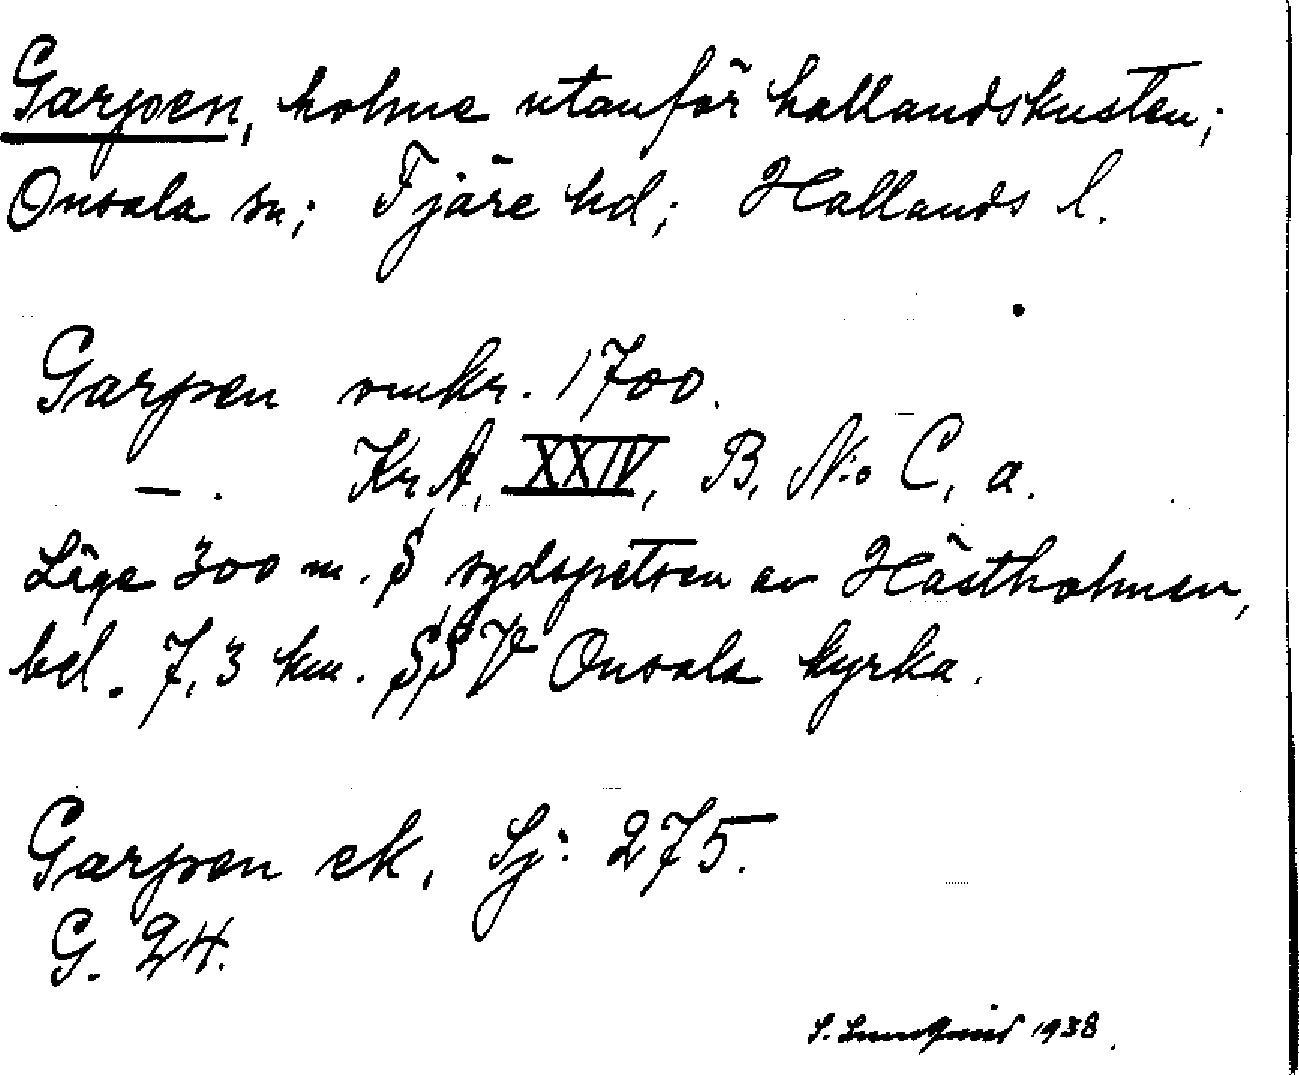 Garpen, holme utanför hallandskusten;
Onsala sn; Fjäre hd; Hallands l.
Garpen omkr. 1700.
— . Kr.A, XXIV, B, N:o C, a.
Läge 300 m. S sydspetsen av Hästholmen,
bel. 7,3 km. SSV Onsala kyrka.
Garpen ek, Sj: 275.
G. 24.
S. Lundqvist 1938.